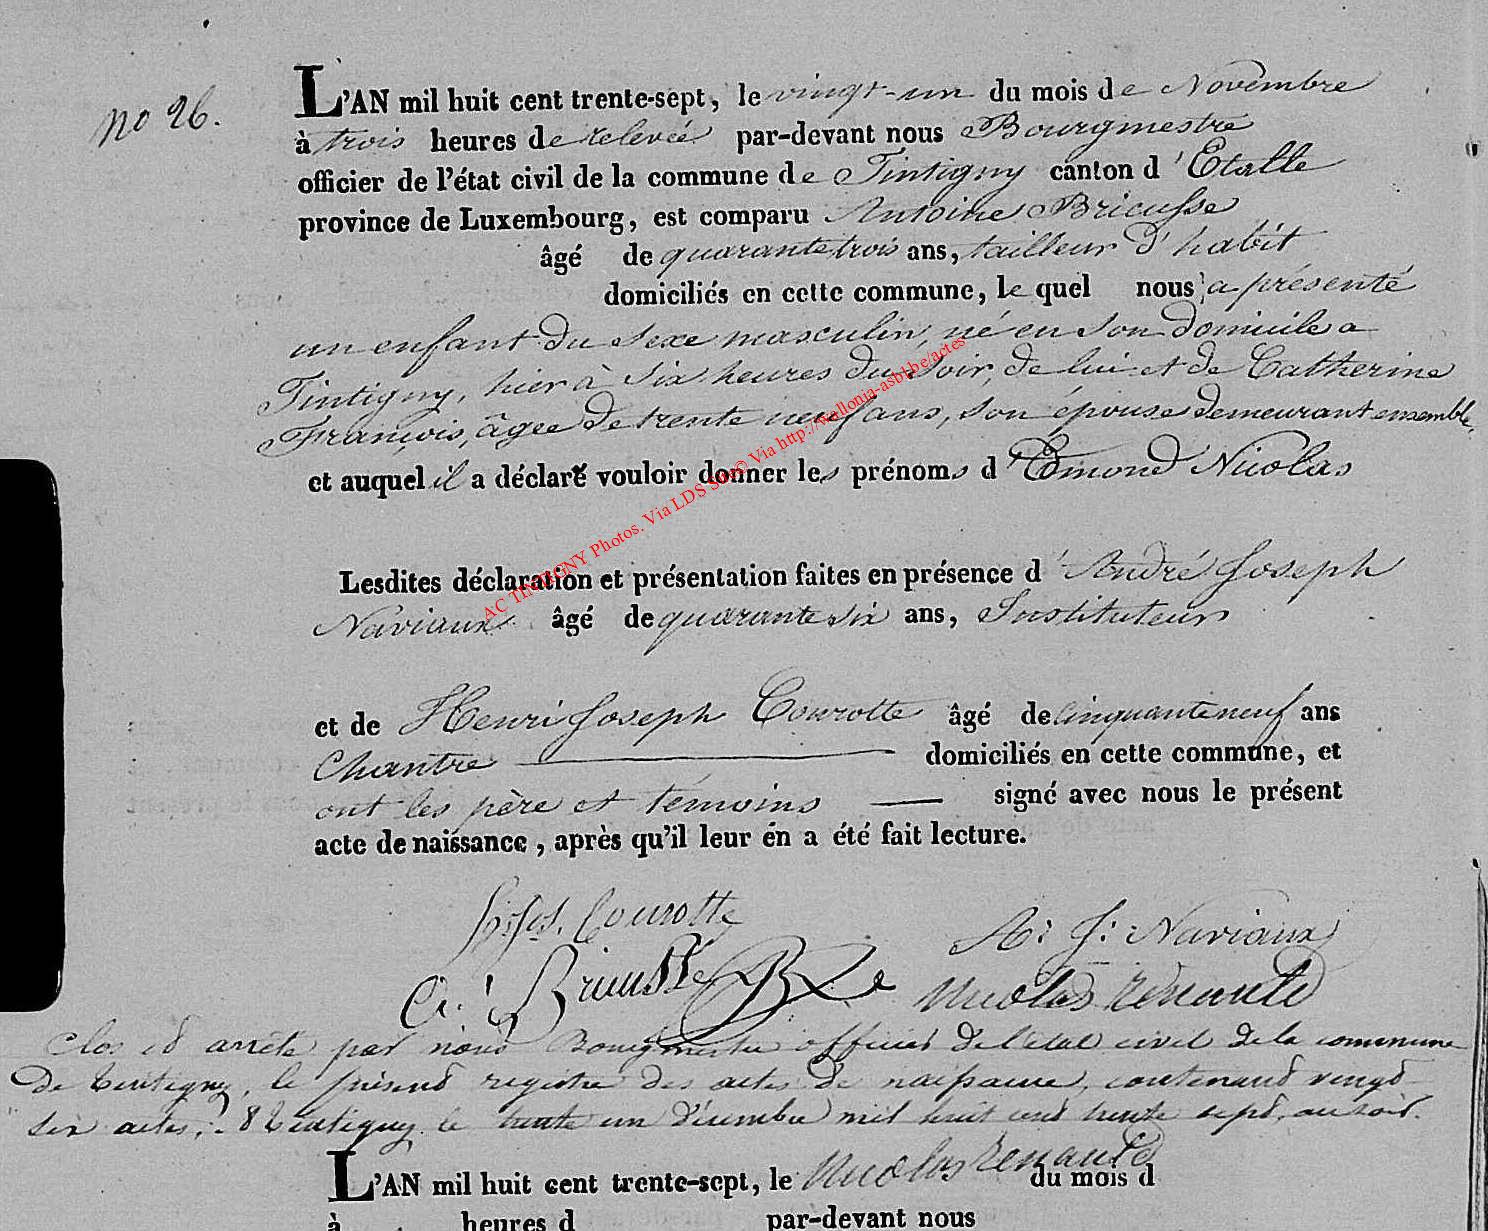 no 26.
L'AN mil huit cent trente-sept, le vingt-un du mois de Novembre
à trois heures de relevée par-devant nous Bourgmestre
officier de l'état civil de la commune de Tintigny canton d'Etalle
province de Luxembourg, est comparu Antoine Bricusse
âgé de quarante trois ans, tailleur d'habit
domiciliés en cette commune, le quel nous a présenté
un enfant du sexe masculin, né en son domicile a
Tintigny, hier à six heures du soir, de lui et de Catherine
François, âgée de trente neuf ans, son épouse demeurant ensemble,
et auquel il a déclaré vouloir donner les prénoms d'Emond Nicolas
AC TINTIGNY Photos. Via LDS Site© Via http://wallonia-asbl.be/actes
Lesdites déclaration et présentation faites en présence d'André Joseph
Naviaux âgé de quarante six ans, Instituteur
et de Henri Joseph Courotte âgé de cinquante neuf ans
Chantre domiciliés en cette commune, et
ont les père et témoins signé avec nous le présent
acte de naissance, après qu'il leur en a été fait lecture.
h: Jos. Courotte
A: J: Naviaux
A: Bricusse
Nicolas Renauld
Clos et arrêté par nous Bourgmestre officier de l'état civil de la commune
de Tintigny, le présend registre des actes de naissance, contenand vingd
six actes, à Tintigny le trente un Décembre mil huit cend trente sepd, au soir.
Nicolas Renauld
L'AN mil huit cent trente-sept, le du mois d
à heures d par-devant nous